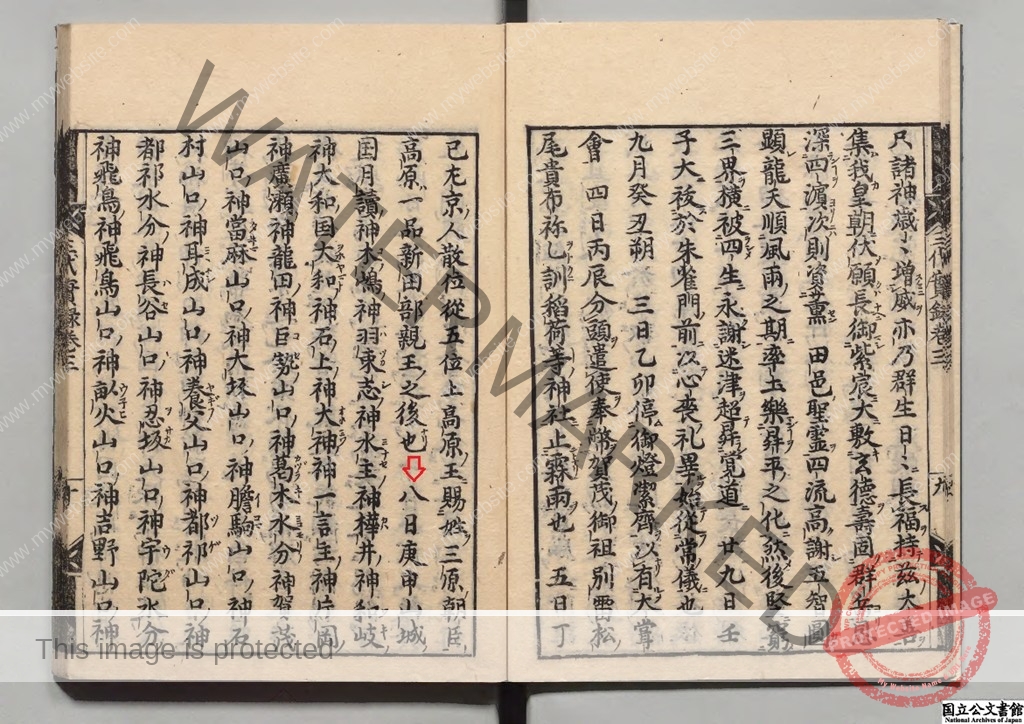 尺諸神熾々增威亦乃群生日々長福持茲大善
集我皇朝伏願長御紫宸大敷玄德壽固群
深四濱次則資薰 田邑聖霊四流高謝五智圓
顕龍天順風雨之期率土樂昇平之化然後堅
三界橫被四生永謝迷津超昇覚道 廿九日壬
子大祓於朱雀門前以心喪礼異始從常儀也
九月癸丑朔 三日乙卯停御燈潔齊以有大甞
會 四日丙辰分頭遣使奉幣賀茂御祖別雷松
尾貴布祢乙訓稲荷等神社止霖雨也 五日丁
巳左京人散位從五位上高原王賜姓三原朝臣
高原一品新田部親王之後也 八日庚申山城
国月讀神木嶋神羽束志神水主神樺井神和岐
神大和国大和神石上神大神神一言主神片岡
神廣瀬神龍田神巨勢山口神葛木水分神賀茂
山口神當麻山口神大坂山口神膽駒山口神石
村山口神耳成山口神養父山口神都祁山口神
都祁水分神長谷山口神忍坂山口神宇陀水分
神飛鳥神飛鳥山口神畝火山口神吉野山口神
三代實録巻三
九
三代實録巻三
十
WATERMARKED
This image is protected
PROTECTED IMAGE
www.mywebsite.com
国立公文書館
National Archives of Japan